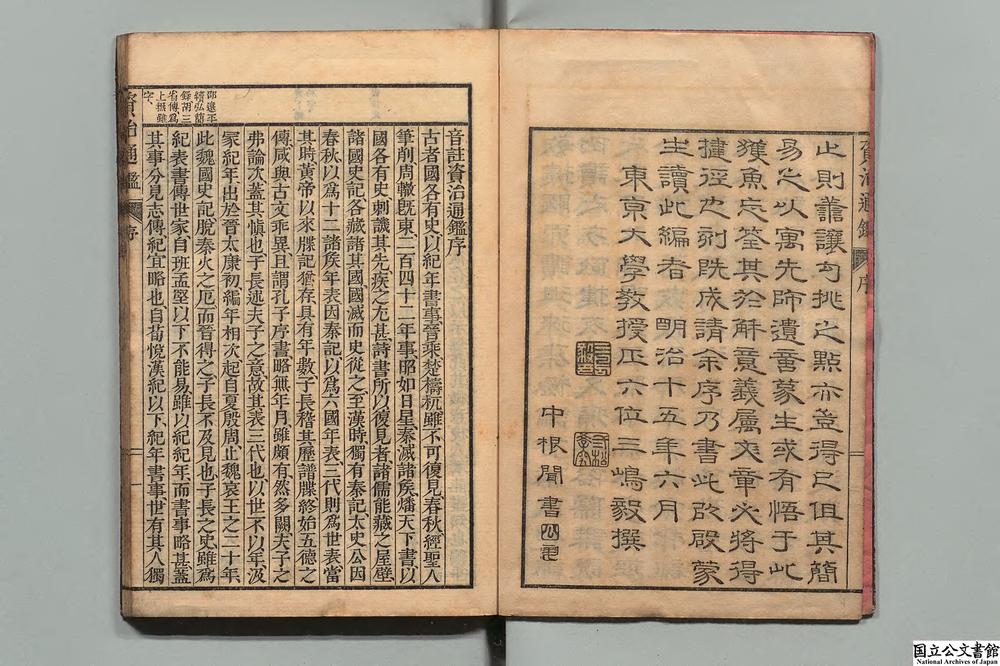 資治通鑑 序
則讓句之點亦豈得已但其簡
易足以寓先師遺意蒙生或有悟于此
獲魚忘筌其於解意義屬文章必將得
捷徑也刻既成請余序乃書此以啟蒙
生讀此編者 明治十五年六月
東京大學教授正六位三嶋毅撰
中根聞書
音註資治通鑑序
古者國各有史以紀年書事晉乘楚檮杌雖不可復見春秋經聖人
筆削周轍既東二百四十二年事昭如日星秦滅諸侯燔天下書以
國各有史刺譏其先疾之尤甚詩書所以復見者諸儒能藏之屋壁
諸國史記各藏諸其國國滅而史從之至漢時獨有秦記太史公因
春秋以爲十二諸侯年表因秦記以爲六國年表三代則爲世表當
其時黃帝以來牒記猶存具有年數子長稽其歷譜牒終始五德之
傳咸與古文乖異且謂孔子序書略無年月雖頗有然多闕夫子之
弗論次蓋其愼也子長述夫子之意故其表三代也以世不以年汲
冢紀年出於晉太康初編年相次起自夏殷周止魏哀王之二十年
此魏國史記脫秦火之厄而晉得之子長不及見也子長之史雖爲
紀表書傳世家自班孟堅以下不能易雖以紀紀年而書事略甚蓋
其事分見志傳紀宜略也自荀悅漢紀以下紀年書事世有其人獨
邵遠平
續弘簡
錄胡三
省傳爲
上無雖
字
資治通鑑 序 一
国立公文書館
National Archives of Japan